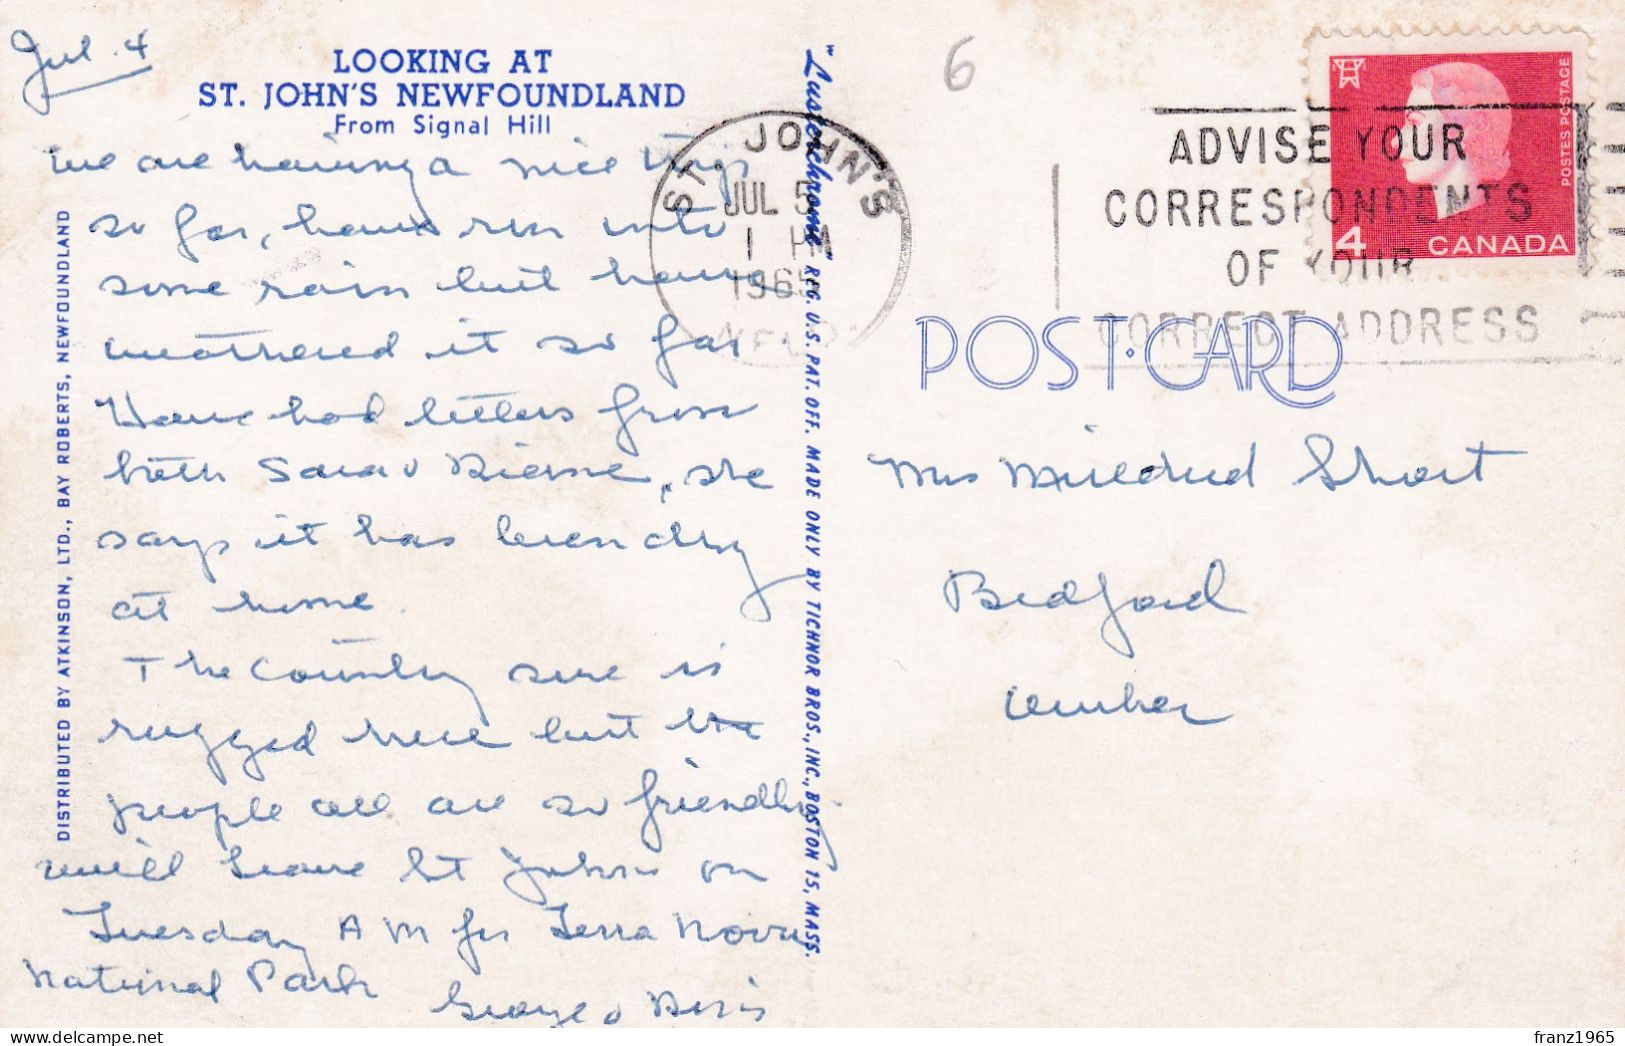 Jul. 4
LOOKING AT
ST. JOHN'S NEWFOUNDLAND
From Signal Hill
We are having a nice trip
so far, have run into
some rain but have
weathered it so far
Have had letters from
both Sara &
she
says it has been dry
at home.
The country sure is
rugged here but the
people all are so friendly
will leave St Johns on
Tuesday A M for Terra Nova
National Park
George & Doris
DISTRIBUTED BY ATKINSON, LTD., BAY ROBERTS, NEWFOUNDLAND
"Lusterchrome" REG. U.S. PAT. OFF. MADE ONLY BY TICHNOR BROS., INC., BOSTON 15, MASS.
6
ST. JOHN'S
JUL 5
1 PM
1965
NFLD.
ADVISE YOUR
CORRESPONDENTS
OF YOUR
CORRECT ADDRESS
POSTES POSTAGE
4 CANADA
POST·CARD
Mrs Mildred Short
Bedford
Quebec
franz1965